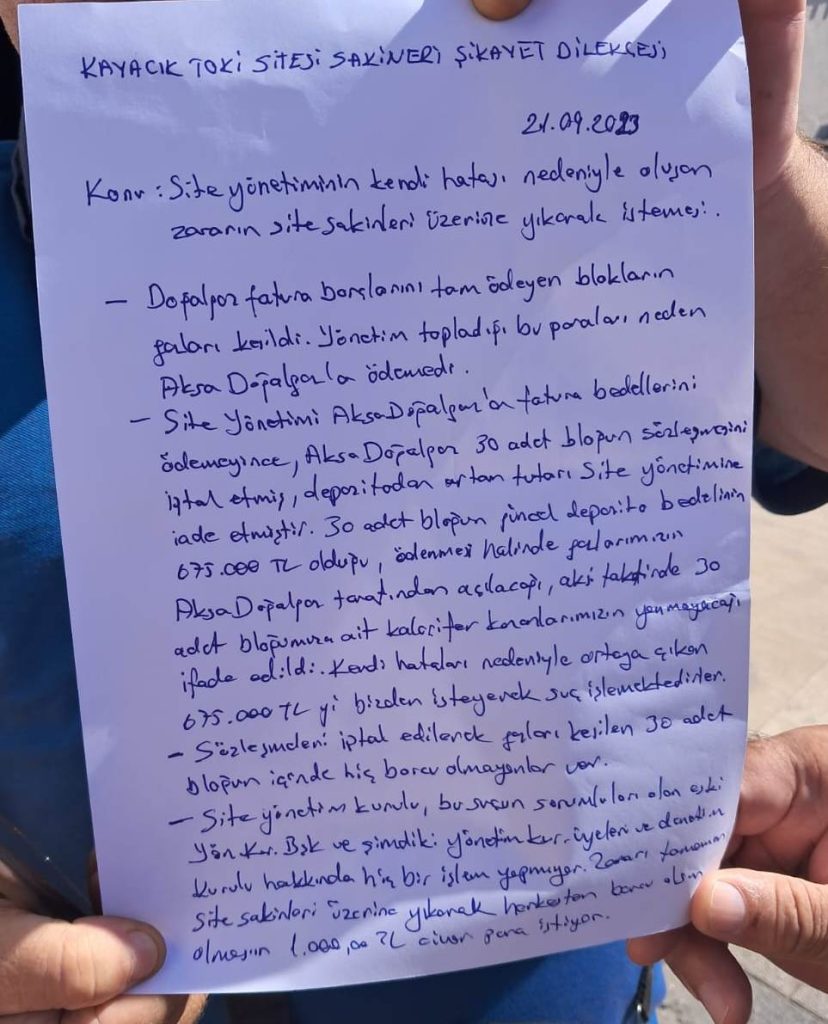 KAYACIK TOKİ SİTESİ SAKİNERİ ŞİKAYET DİLEKÇESİ
21.09.2023
Konu : Site yönetiminin kendi hatası nedeniyle oluşan
zararın site sakinleri üzerine yıkarak istemesi.
- Doğalgaz fatura borçlarını tam ödeyen blokların
gazları kesildi. Yönetim topladığı bu paraları neden
Aksa Doğalgaz'a ödemedi.
- Site Yönetimi Aksa Doğalgaz'ın fatura bedellerini
ödemeyince, Aksa Doğalgaz 30 adet bloğun sözleşmesini
iptal etmiş, depozitodan artan tutarı Site yönetimine
iade etmiştir. 30 adet bloğun güncel depozito bedelinin
675.000 TL olduğu, ödenmesi halinde gazlarımızın
Aksa Doğalgaz tarafından açılacağı, aksi taktirde 30
adet bloğumuza ait kalorifer kazanlarımızın yanmayacağı
ifade edildi. Kendi hataları nedeniyle ortaya çıkan
675.000 TL yi bizden isteyerek suç işlemektedirler.
- Sözleşmeleri iptal edilerek gazları kesilen 30 adet
bloğun içinde hiç borcu olmayanlar var.
- Site yönetim kurulu, bu suçun sorumluları olan eski
Yön. Kur. Bşk ve şimdiki yönetim kur. üyeleri ve denetim
kurulu hakkında hiç bir işlem yapmıyor. Zararı tamamen
site sakinleri üzerine yıkarak herkesten borcu olsun
olmasın 1.000,00 TL civarı para istiyor.